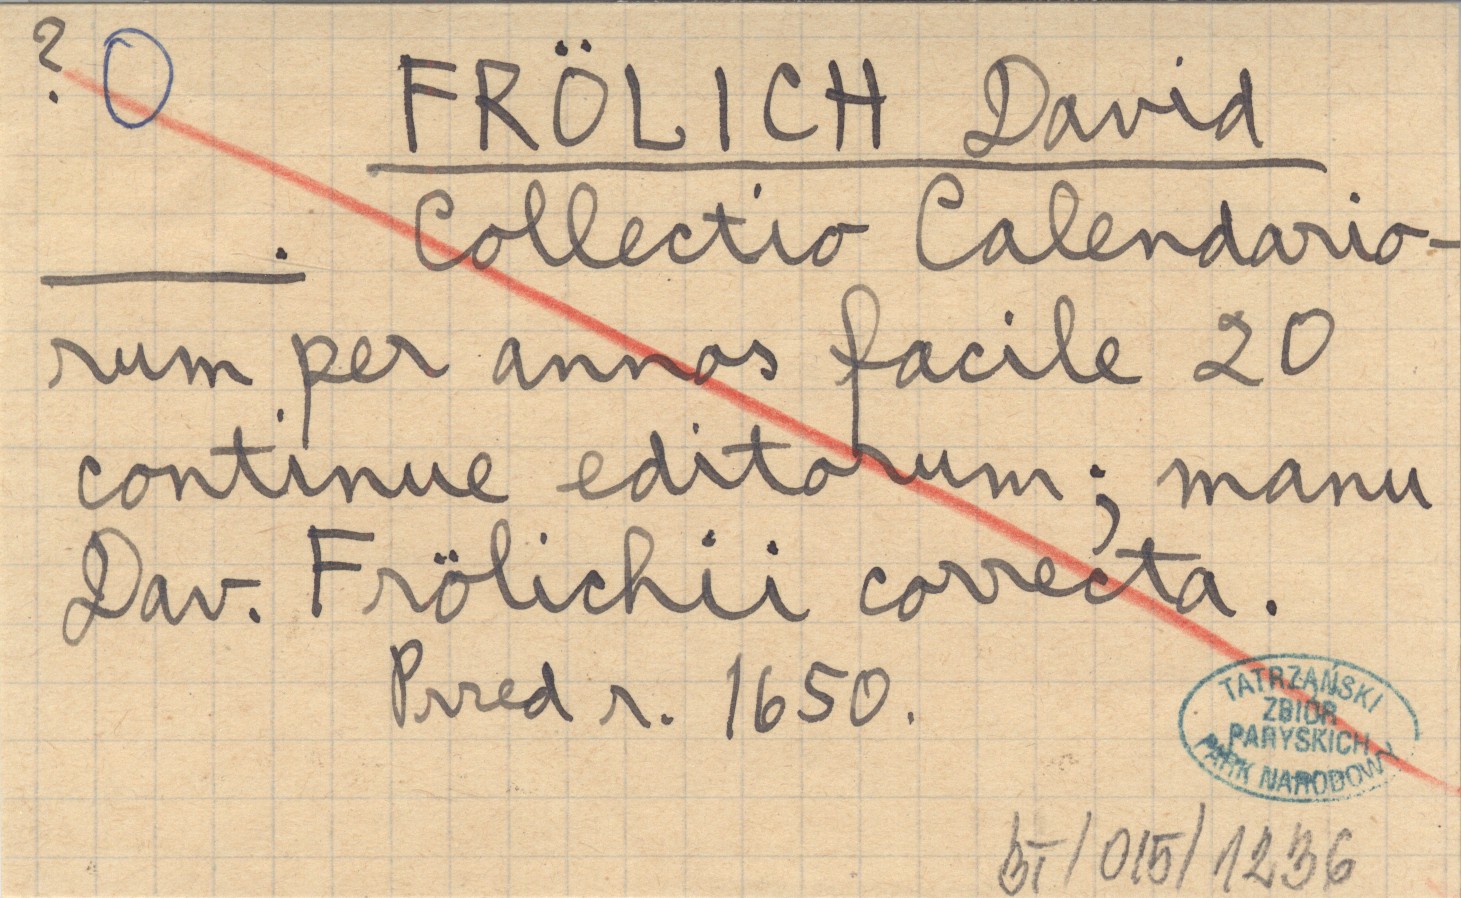 ? O FRÖLICH David
. Collectio Calendario-
rum per annos facile 20
continue editorum; manu
Dav. Frölichii correcta.
Przed r. 1650.
TATRZAŃSKI
ZBIÓR
PARYSKICH
PARK NARODOWY
BT/015/1236